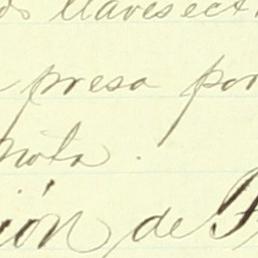 llaves ect
presa por
ión de